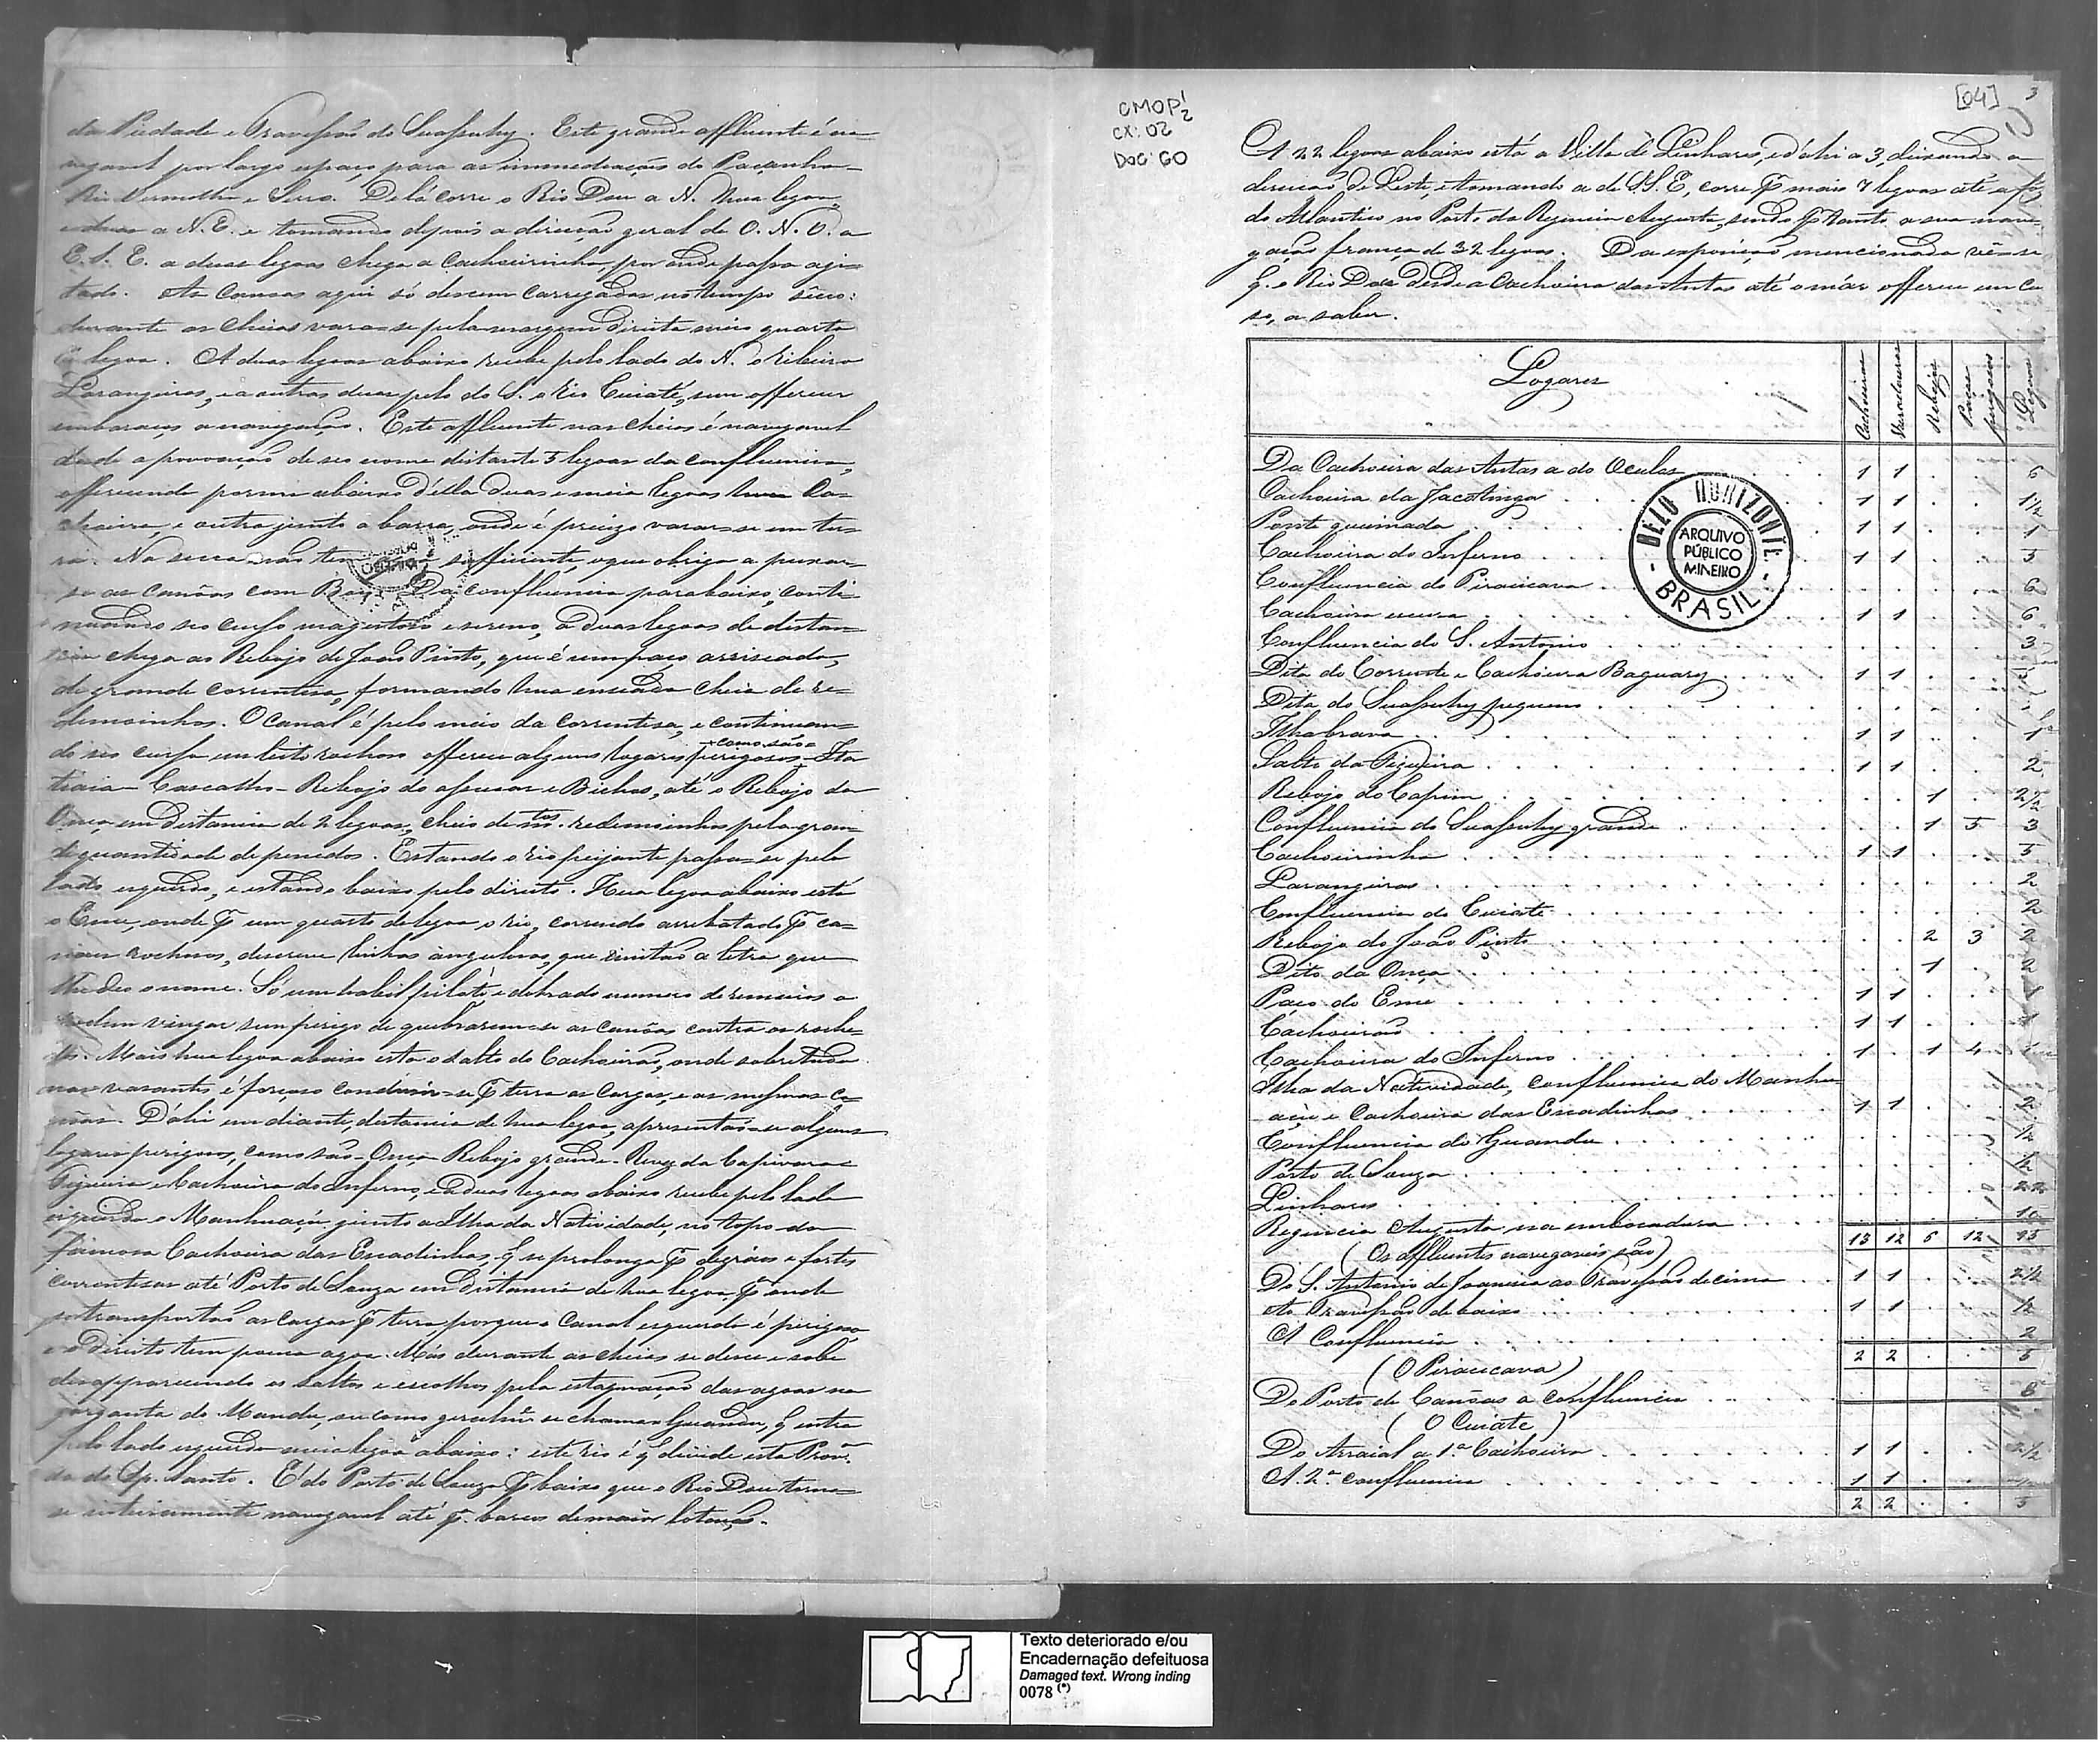 da Piedade e Travessão do Suassuhy. Este grande affluente é na=
vegavel por largo espaço para as immediações do Paçanha=
Rio Vermelho e Serro. De lá corre o Rio Doce a N. hua legoa,
e duas a N. E. e tomando depois a direcção geral de O. N. O. a
E. S. E. a duas legoas chega a Cachoeirinha, por onde passa agi=
tado. As Canoas aqui só descem carregadas no tempo sêcco:
durante as cheias vara-se pela margem direita meio quarto
de legoa. A duas legoas abaixo recebe pelo lado do N. o ribeiro
Larangeiras, e a outras duas pelo do S. o rio Cuiaté, sem offerecer
embaraços a navegação. Este affluente nas cheias é navegavel
desde a povoação de seo nome distante 5 legoas da confluencia,
offerecendo porem abaixo d'ella duas e meia legoas hua Ca=
choeira, e outra junto a barra, onde é precizo varar-se em ter=
ra. Na secca não tem sufficiente, o que obriga a puxar=
se as canôas com Da confluencia para baixo, conti=
nuando seo curso magestoso e sereno, a duas legoas de distan=
cia chega ao Rebojo de João Pinto, que é um paço arriscado,
de grande correntesa, formando hua enseada cheia de re=
demoinhos. O canal é pelo meio da correntesa, e continuan=
do seo curso em leito rochoso offerece alguns lugares perigosos =como são= Ita
tiaia - Cascalho - Rebojo do assucar e Bichas, até o Rebojo da
Onça, em distancia de 2 legoas, cheio de mtos. redemoinhos pela gran=
de quantidade de penedos. Estando o rio passa-se pelo
lado esquerdo, e estando baixo pelo direito. Hua legoa abaixo está
o Eme, onde p um quarto de legoa o rio, correndo arrebatado p ca=
naes rochosos, descreve linhas angulosas, que imitão a letra que
lhe deo o nome. Só um habil piloto e dobrado numero de remeiros o
podem vingar sem perigo de quebrarem-se as canôas contra os roche=
dos. Mais hua legoa abaixo está o salto do Cachoeirão, onde sobretudo
nas vasantes é forçoso condusir-se p terra as cargas, e as mesmas ca=
nôas. D'ahi em diante, distancia de hua legoa, apresentão-se alguns
lugares perigosos, como são - Onça - Rebojo grande - da Capivara=
Figueira e Cachoeira do Inferno, e a duas legoas abaixo recebe pelo lado
esquerdo o Manhuaçu, junto a Ilha da Natividade, no topo da
famosa Cachoeira das Escadinhas, q se prolonga p degráos e fortes
correntesas até Porto de Souza em distancia de hua legoa, p onde
se transportão as cargas p terra, porque o Canal esquerdo é perigoso
e o direito tem pouca agoa. Mas durante as cheias se desce e sobe
desapparecendo os saltos e escolhos pela estagnação das agoas na
garganta do Mandu, ou como geralme. se chama o Guandu, q entra
pelo lado esquerdo meia legoa abaixo: este rio é q divide esta Prova.
da do Sp. Santo. É do Porto de Souza p baixo que o Rio Doce torna=
se inteiramente navegavel até p. barcos de maior lotação.
CMOP 1/2
CX: 02
DOC: 60
[04] 3
A 22 legoas abaixo está a Villa de Linhares, e d'ahi a 3, deixando a
direcção de Leste, e tomando a de S. S. E, corre p mais 7 legoas até a foz
do Atlantico no Porto da Regencia Augusta, sendo p tanto a sua nave=
gação franca de 32 legoas. Da exposição mencionada vê-se
q. o Rio Doce desde a Cachoeira das Antas até o mar offerece em ca
so, a saber.
Logares Cachoeiras Varadouros Rebojos Paços perigosos Legoas
Da Cachoeira das Antas a do Oculos 1 1 . . 6
Cachoeira da Jacotinga 1 1 . . 1½
Ponte queimada 1 1 . . 1
Cachoeira do Inferno 1 1 . . 5
Confluencia do Piracicava . . . . 6
Cachoeira escura 1 1 . . 6
Confluencia do S. Antonio . . . . 3
Dita do Corrente e Cachoeira Baguary 1 1 . .
Dita do Suassuhy pequeno . . . .
Ilha brava 1 1 . . 1
Salto da Figueira 1 1 . . 2
Rebojo do Capim . . 1 . 2½
Confluencia do Suassuhy grande . . 1 5 3
Cachoeirinha 1 1 . . 5
Larangeiras . . . . 2
Confluencia do Cuiaté . . . . 2
Rebojo do João Pinto . . 2 3 2
Dito da Onça . . 1 . 2
Paço do Eme 1 1 . . 1
Cachoeirão 1 1 . . 1
Cachoeira do Inferno 1 . 1 4 1
Ilha da Natividade, confluencia do Manhu=
açu e Cachoeira das Escadinhas 1 1 . . 2
Confluencia do Guandu . . . . ½
Porto de Souza . . . . ½
Linhares . . . . 22
Regencia Augusta na embocadura . . . . 10
13 12 6 12 93
(Os affluentes navegaveis são)
Do S. Antonio de Joanesia ao Travessão de cima 1 1 . . 2½
Ao Travessão de baixo 1 1 . . ½
A Confluencia . . . . 2
2 2 . . 5
(O Piracicava)
Do Porto de Canôas a confluencia 8
(O Cuiate)
Do Arraial a 1.ª Cachoeira 1 1 . . 2½
A 2.ª confluencia 1 1 . .
2 2 . . 5
BELO HORIZONTE
ARQUIVO
PÚBLICO
MINEIRO
- BRASIL -
Texto deteriorado e/ou
Encadernação defeituosa
Damaged text. Wrong inding
0078 (*)